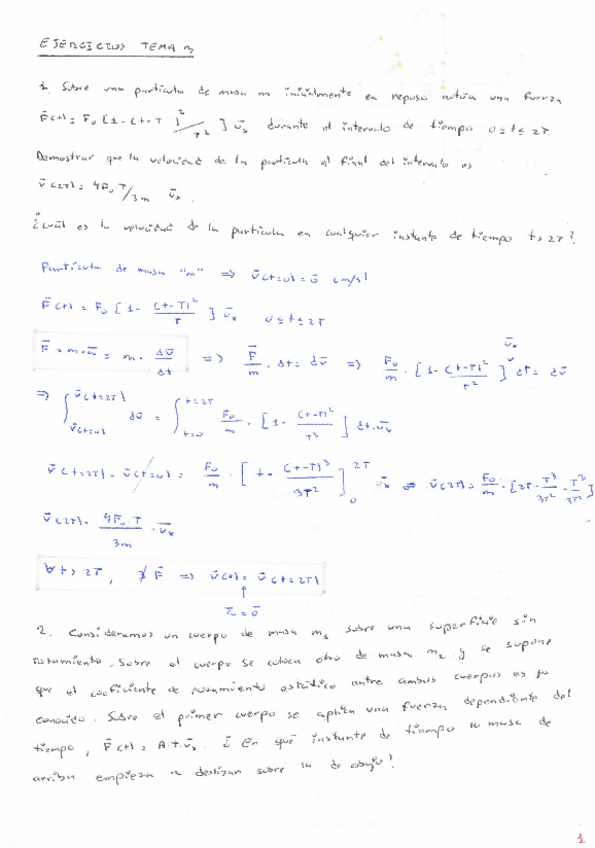 EJERCICIOS TEMA 3
1. Sobre una partícula de masa m inicialmente en reposo actúa una fuerza
F̄(t) = F₀ [1 - (t-T)²/T²] ūₓ durante el intervalo de tiempo 0 ≤ t ≤ 2T
Demostrar que la velocidad de la partícula al final del intervalo es
v̄(2T) = 4F₀T/3m ūₓ.
¿Cuál es la velocidad de la partícula en cualquier instante de tiempo t > 2T?
Partícula de masa "m" ⇒ v̄(t=0) = 0̄ (m/s)
F̄(t) = F₀ [1 - (t-T)²/T] ūₓ 0 ≤ t ≤ 2T
F̄ = m·ā = m · dv̄/dt ⇒ F̄/m · dt = dv̄ ⇒ F₀/m · [1 - (t-T)²/T²] ūₓ dt = dv̄
⇒ ∫_{v̄(t=0)}^{v̄(t=2T)} dv̄ = ∫_{t=0}^{t=2T} F₀/m · [1 - (t-T)²/T²] dt·ūₓ
v̄(t=2T) - v̄(t=0) = F₀/m · [t - (t-T)³/3T²]₀^{2T} ūₓ ⇔ v̄(2T) = F₀/m · [2T - T³/3T² - T³/3T²]
v̄(2T) = 4F₀·T/3m · ūₓ
∀ t > 2T, ∄ F̄ ⇒ v̄(t) = v̄(t=2T)
↑
= 0̄
2. Consideramos un cuerpo de masa m₁ sobre una superficie sin
rozamiento. Sobre el cuerpo se coloca otro de masa m₂ y se supone
que el coeficiente de rozamiento estático entre ambos cuerpos es
conocido. Sobre el primer cuerpo se aplica una fuerza dependiente del
tiempo, F̄(t) = A·t·ūₓ. ¿En qué instante de tiempo la masa de
arriba empieza a deslizar sobre la de abajo?
1